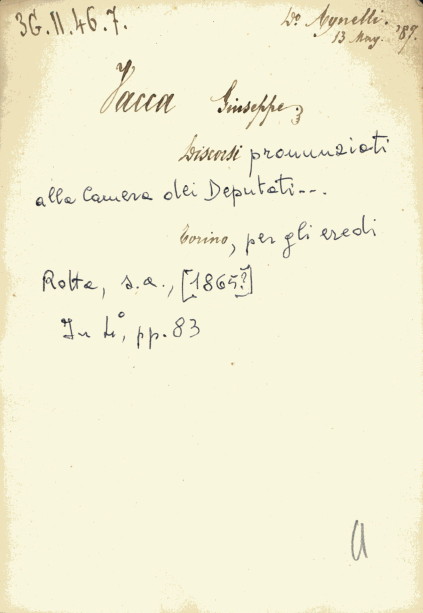 3G.II.46.7.
Do Agnelli.
13 Mag. '89.
Vacca Giuseppe
Discorsi pronunziati
alla Camera dei Deputati...
Torino, per gli eredi
Botta, s.a., [1865?]
In 4°, pp. 83